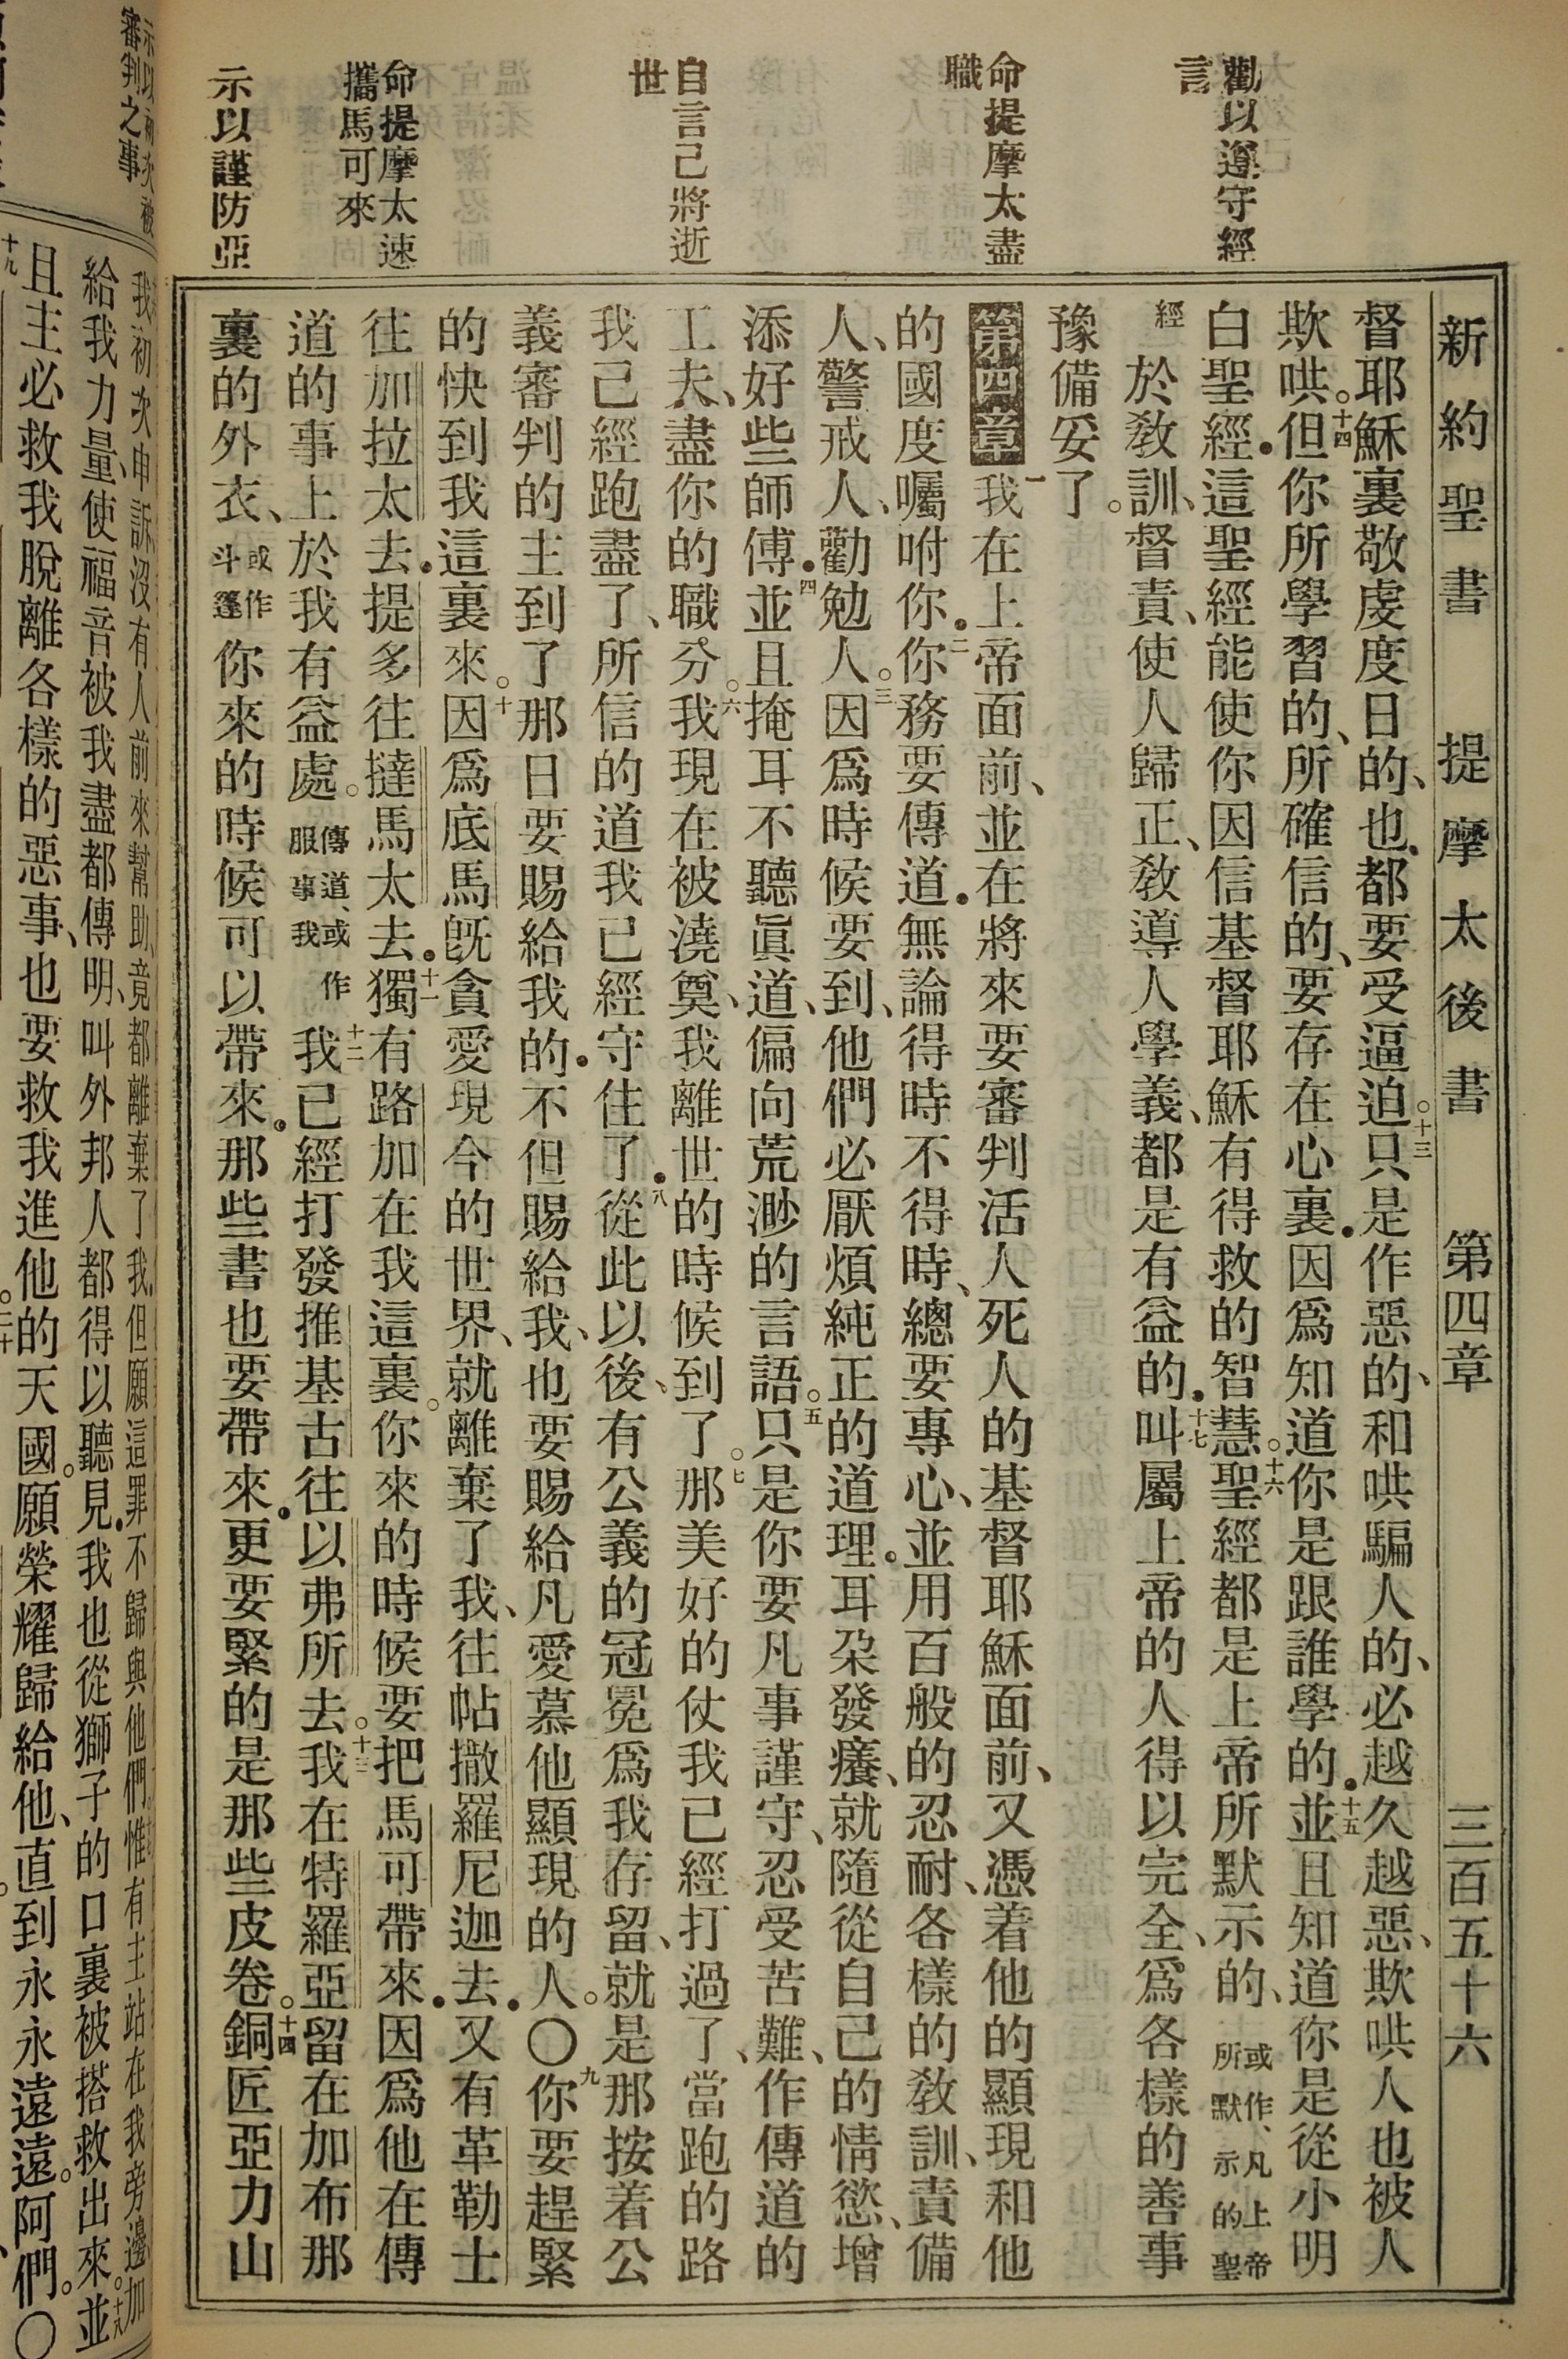 新約聖書 提摩太後書 第四章 三百五十六
勸以遵守經
言
命提摩太盡
職
自言己將逝
世
命提摩太速
攜馬可來
示以謹防亞
督耶穌裏敬虔度日的、也都要受逼迫。十三只是作惡的、和哄騙人的、必越久越惡、欺哄人也被人
欺哄。十四但你所學習的、所確信的、要存在心裏．因爲知道你是跟誰學的．十五並且知道你是從小明
白聖經．這聖經能使你因信基督耶穌有得救的智慧。十六聖經都是上帝所默示的、或作、凡上帝所默示的聖
經於教訓、督責、使人歸正、教導人學義、都是有益的．十七叫屬上帝的人得以完全、爲各樣的善事
豫備妥了。
第四章 一我在上帝面前、並在將來要審判活人死人的基督耶穌面前、又憑着他的顯現和他
的國度囑咐你．二你務要傳道．無論得時不得時、總要專心、並用百般的忍耐、各樣的教訓、責備
人、警戒人、勸勉人。三因爲時候要到、他們必厭煩純正的道理．耳朶發癢、就隨從自己的情慾、增
添好些師傅．四並且掩耳不聽眞道、偏向荒渺的言語。五只是你要凡事謹守、忍受苦難、作傳道的
工夫、盡你的職分。六我現在被澆奠、我離世的時候到了。七那美好的仗我已經打過了、當跑的路
我已經跑盡了、所信的道我已經守住了．八從此以後、有公義的冠冕爲我存留、就是那按着公
義審判的主到了那日要賜給我的．不但賜給我、也要賜給凡愛慕他顯現的人。〇九你要趕緊
的快到我這裏來。十因爲底馬旣貪愛現今的世界、就離棄了我、往帖撒羅尼迦去．又有革勒士
往加拉太去．提多往撻馬太去．十一獨有路加在我這裏。你來的時候要把馬可帶來．因爲他在傳
道的事上於我有益處。傳道、或作服事我十二我已經打發推基古往以弗所去。十三我在特羅亞留在加布那
裏的外衣、或作斗篷你來的時候可以帶來．那些書也要帶來．更要緊的是那些皮卷。十四銅匠亞力山
審判之事
我初次申訴、沒有人前來幫助、竟都離棄了我．但願這罪不歸與他們。惟有主站在我旁邊、加
給我力量、使福音被我盡都傳明、叫外邦人都得以聽見．我也從獅子的口裏被搭救出來。十八並
且主必救我脫離各樣的惡事、也要救我進他的天國。願榮耀歸給他、直到永永遠遠。阿們。〇
十九
二十